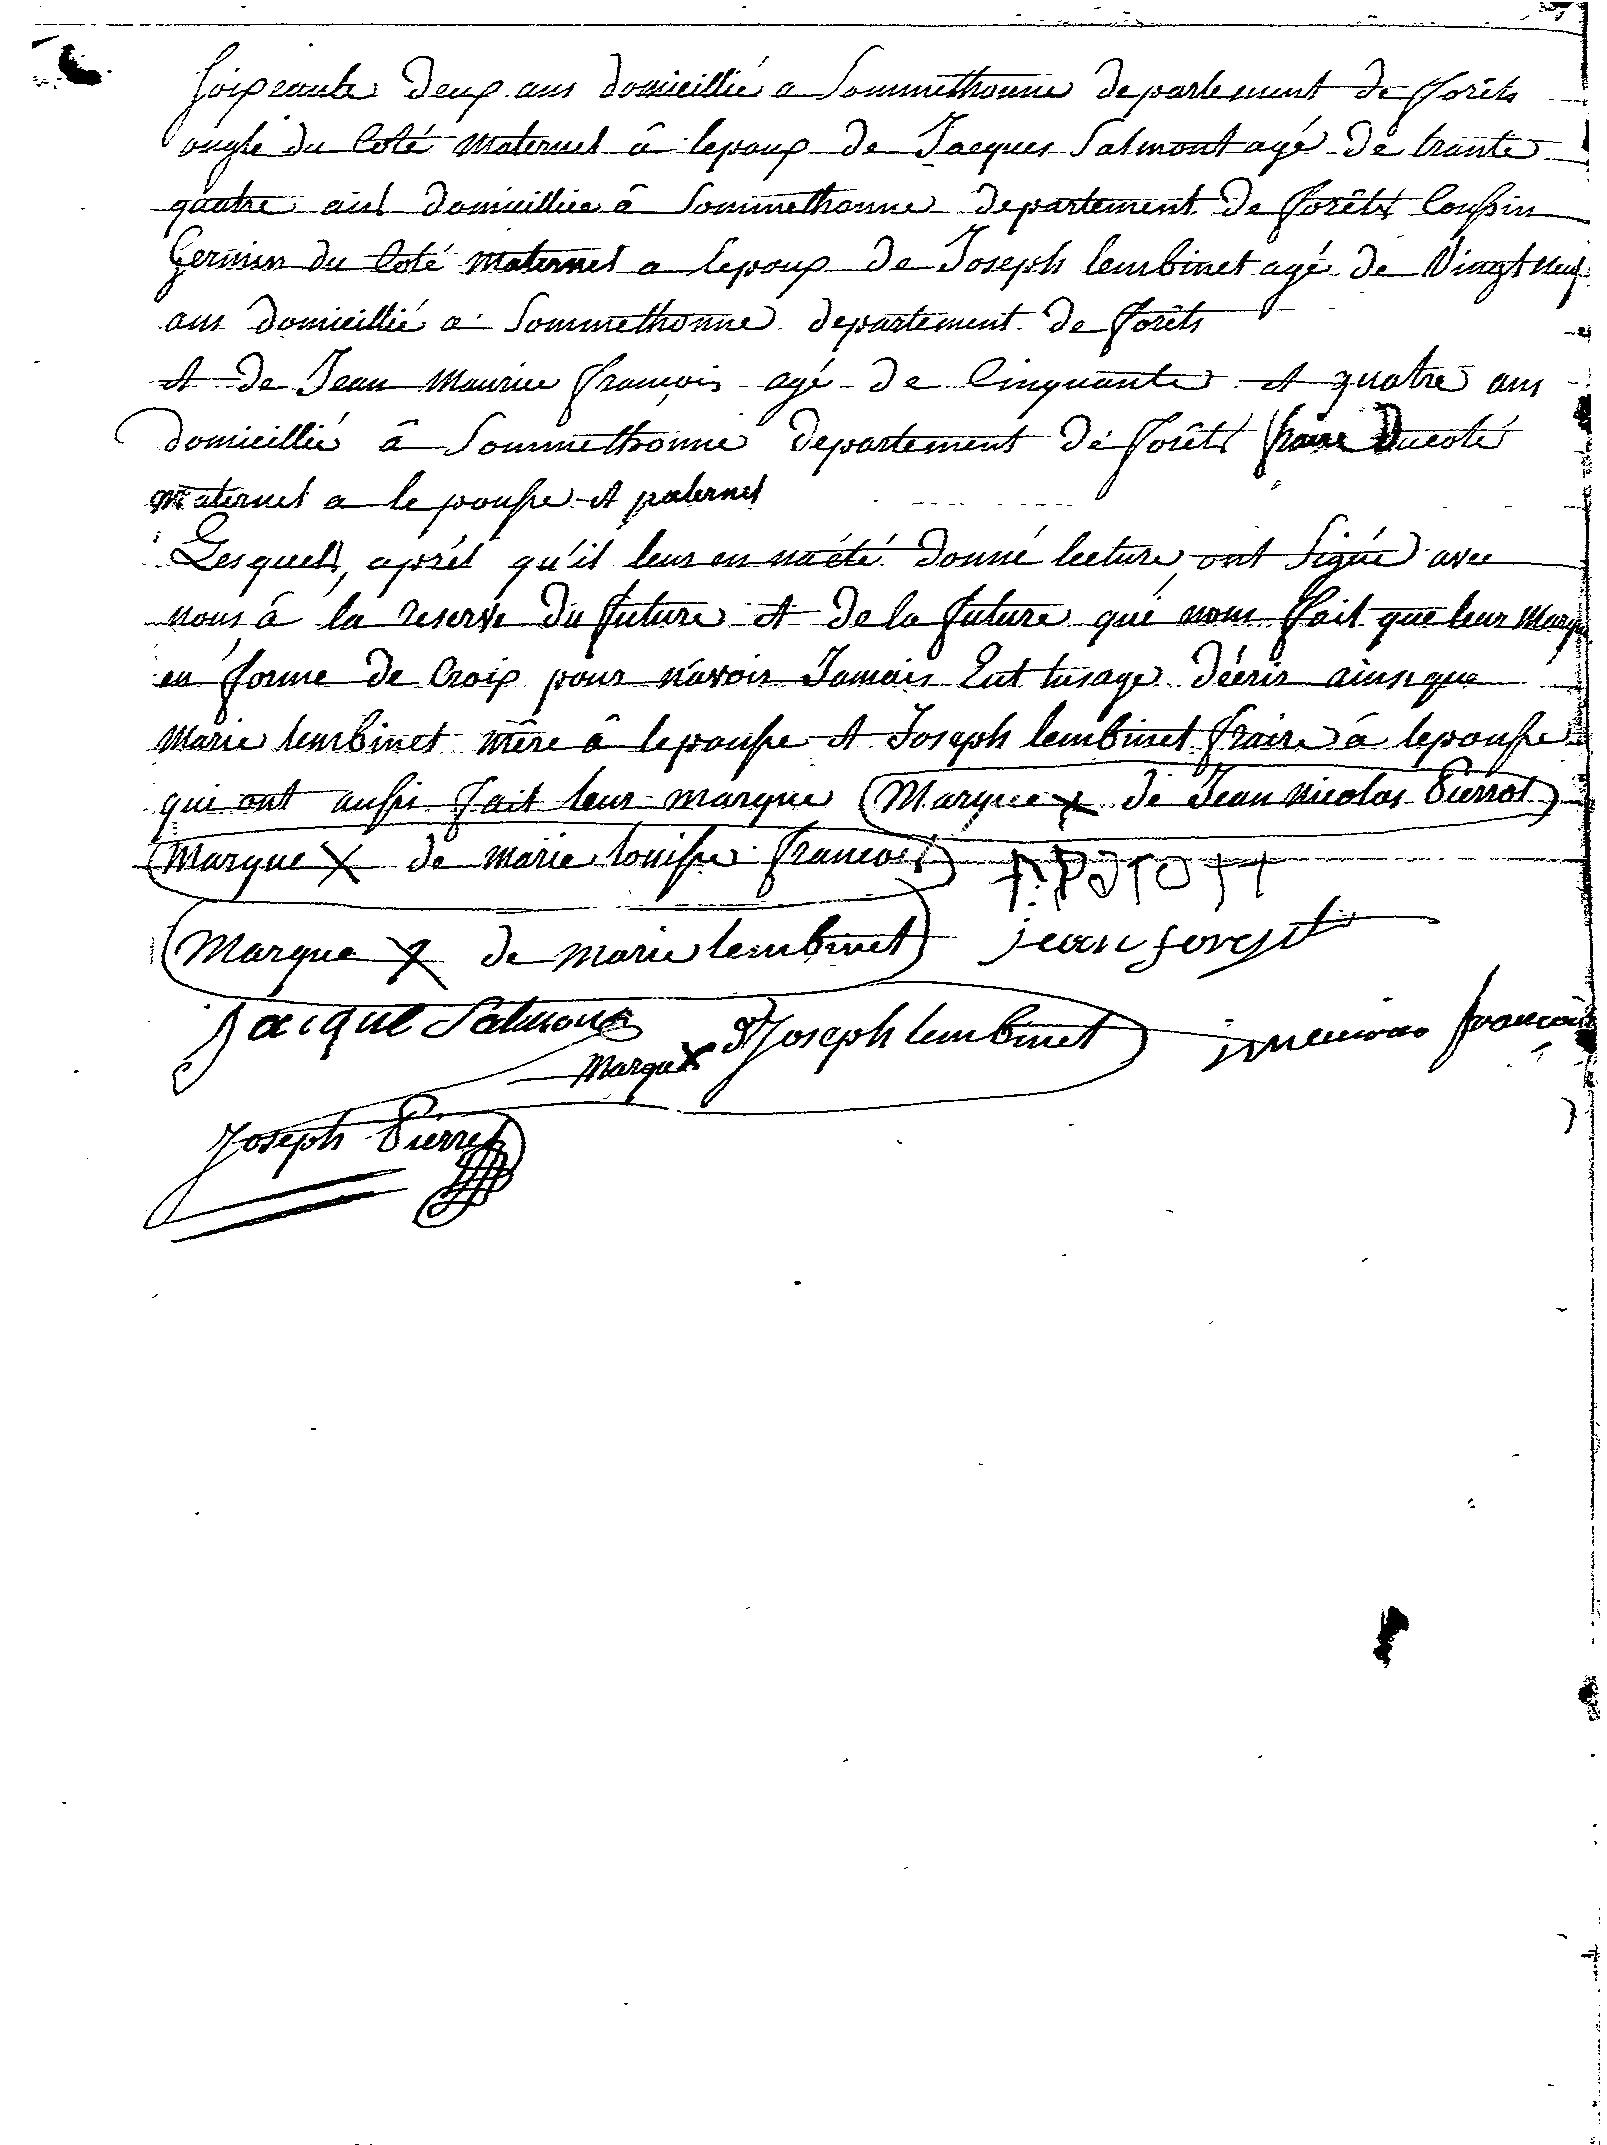 soixeante deux ans domicillié a Sommethonne departement de forêts
ongle du Coté maternel â lepoux de Jacques Salmont agé de trante
quatre ans domicilliée â Sommethonne departement de forêts Coussin
Germin du Coté maternel a lepoux de Joseph lembinet agé de Vingt neuf
ans domicillié a Sommethonne departement de forêts
et de Jean Maurice françois agé de Cinquante et quatre ans
domicillié â Sommethonne departement de forêts fraire Ducoté
maternel a le pousse et paternel
Lesquels, aprés qu'il leur en na été donné lecture, ont Signé avec
nous â la reserve du future et de la future qué nons fait que leur Marque
en forme de Croix pour n'avoir Jamais Eut lusage décrir ainsi que
Marie lembinet mêre â lepousse et Joseph lembinet fraire â lepousse
qui ont aussi fait leur marque Marque X de Jean nicolas Pierrot
Marque X de marie louisse francois
Marque X de marie lembinet jean forest
Jacque Salmon Marque X de Joseph lembinet françois
Joseph Pierret